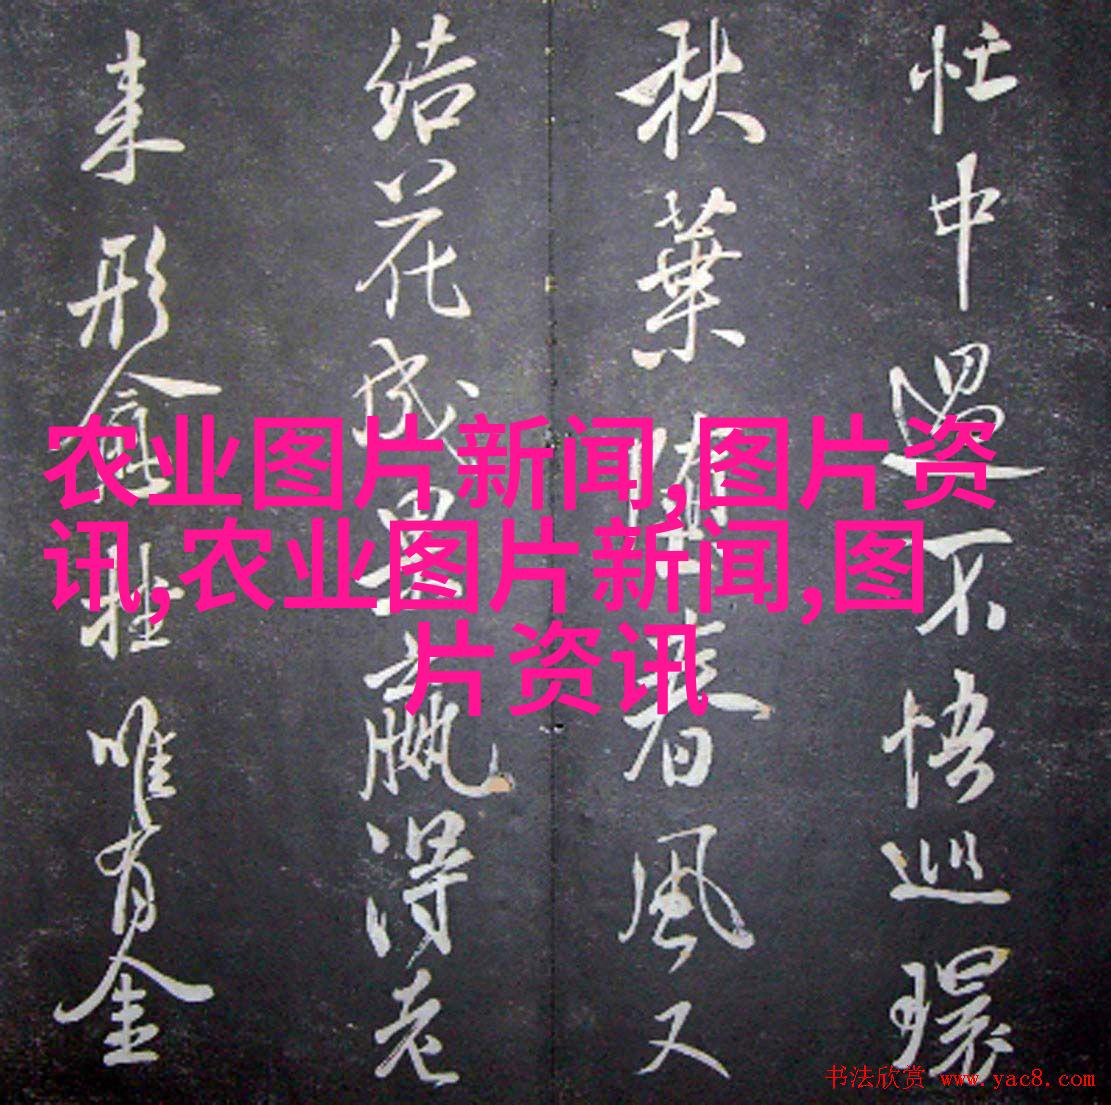 忙中過不悟巡環
秋葉春風又
结花成贏得老
来形唯有金
农业图片新闻,图片资
讯,农业图片新闻,图
片资讯
书法欣赏 www.yac8.com